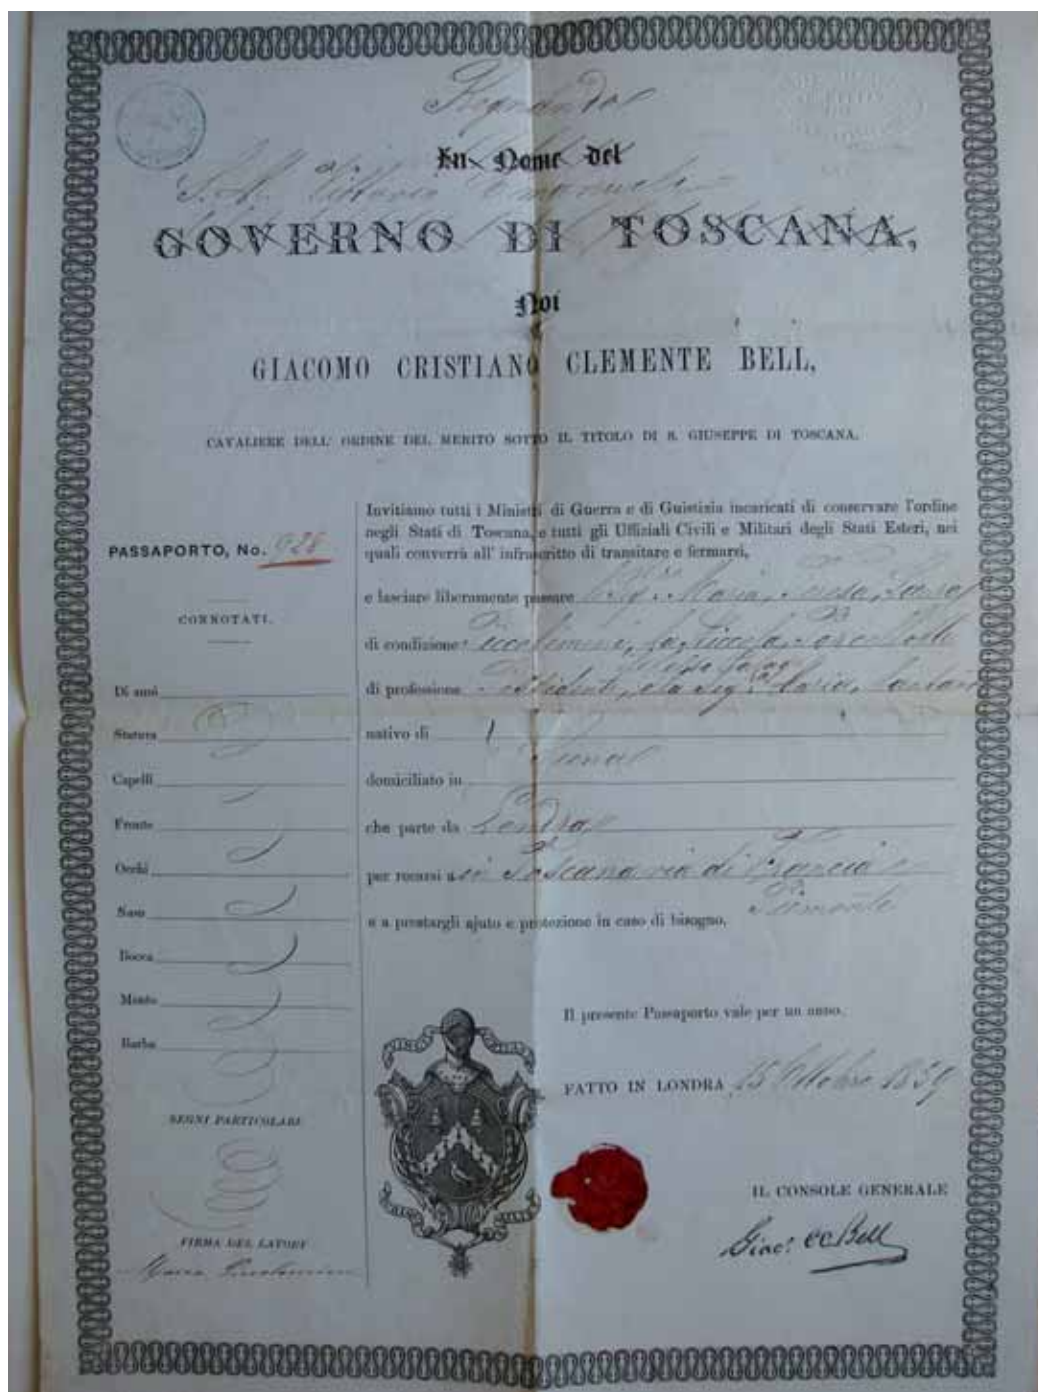 Regnando
In Nome del
S. M. Vittorio Emanuele
GOVERNO DI TOSCANA,
Noi
GIACOMO CRISTIANO CLEMENTE BELL,
CAVALIERE DELL' ORDINE DEL MERITO SOTTO IL TITOLO DI S. GIUSEPPE DI TOSCANA.
PASSAPORTO, No. 928
CONNOTATI.
Di anni
Statura
Capelli
Fronte
Occhi
Naso
Bocca
Mento
Barba
SEGNI PARTICOLARI
FIRMA DEL LATORE
Maria Piccolomini
Invitiamo tutti i Ministri di Guerra e di Guistizia incaricati di conservare l'ordine
negli Stati di Toscana, e tutti gli Uffiziali Civili e Militari degli Stati Esteri, nei
quali converrà all' infrascritto di transitare e fermarsi,
e lasciare liberamente passare Maria, Teresa,
di condizione Piccolomini,
di professione Possidenti, e la Sig. Maria,
nativo di
Siena
domiciliato in
che parte da Londra
per recarsi a in Toscana via di Francia e
Piemonte
e a prestargli ajuto e protezione in caso di bisogno.
Il presente Passaporto vale per un anno.
FATTO IN LONDRA 15 Ottobre 1859
IL CONSOLE GENERALE
Giac. CC Bell